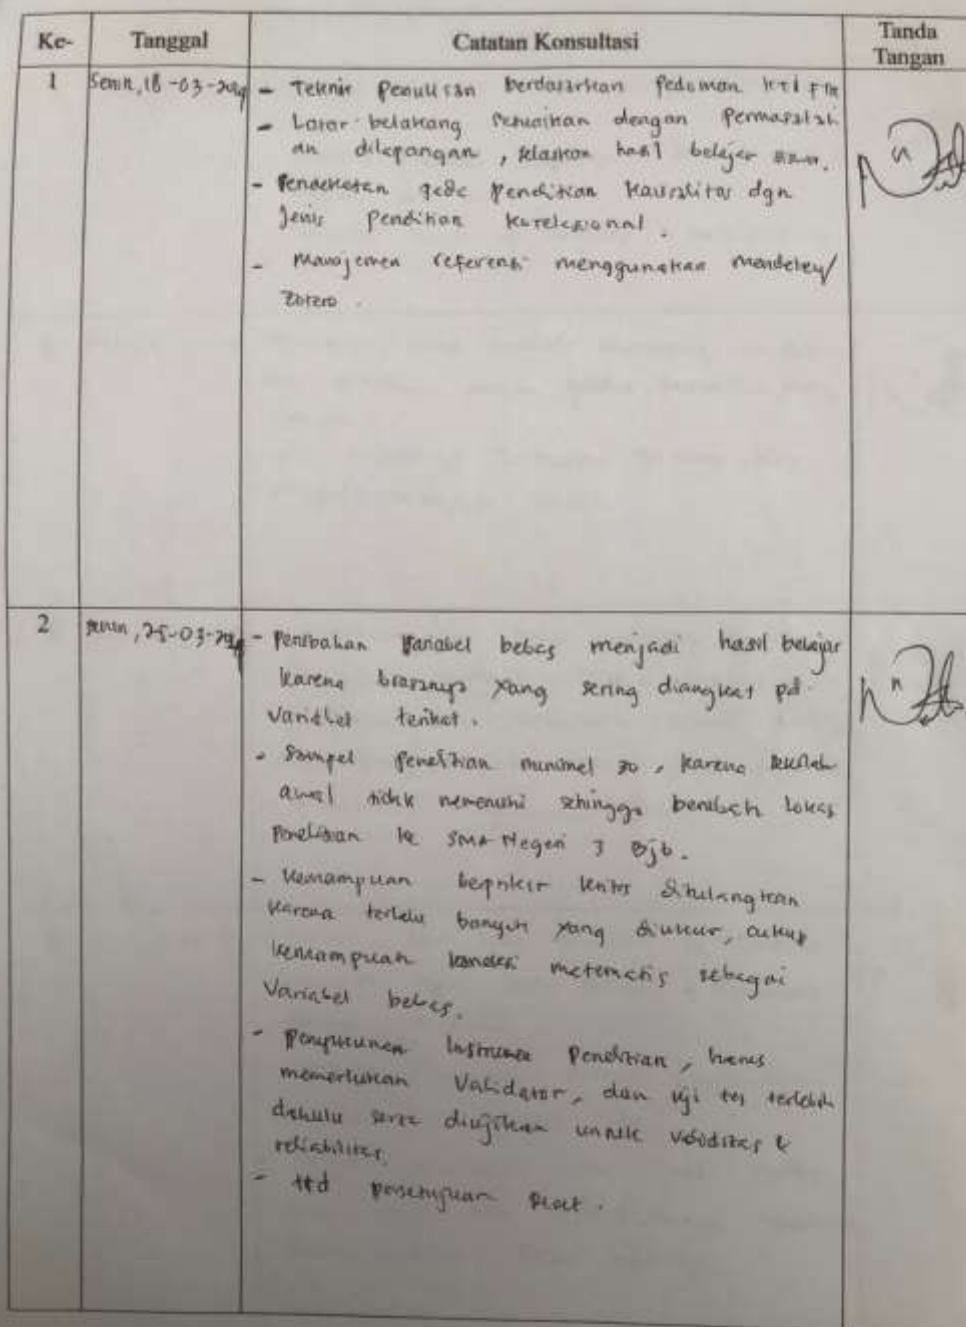 Ke- Tanggal Catatan Konsultasi Tanda Tangan
1 Senin, 18-03-2024 - Teknik Penulisan berdasarkan Pedoman KTI
- Latar belakang sesuaikan dengan Permasalah
an dilapangan, jelaskan hasil belajar
- Pendekatan pada penelitian Kausalitas dgn
Jenis penelitian Korelasional.
- Manajemen referensi menggunakan mendeley/
Zotero.
2 Senin, 25-03-2024 - Perubahan Variabel bebas menjadi hasil belajar
karena biasanya yang sering diangkat pd
Variabel terikat.
- Sampel penelitian minimal 30, karena sekolah
awal tidak memenuhi sehingga berubah lokasi
Penelitian ke SMA Negeri 3 Bjb.
- Kemampuan berpikir kritis dihilangkan
karena terlalu banyak yang diukur, cukup
kemampuan koneksi matematis sebagai
Variabel bebas.
- Penyusunan Instrumen Penelitian, harus
memerlukan Validator, dan uji tes terlebih
dahulu serta diujikan untuk validitas &
reliabilitas.
- ttd persetujuan